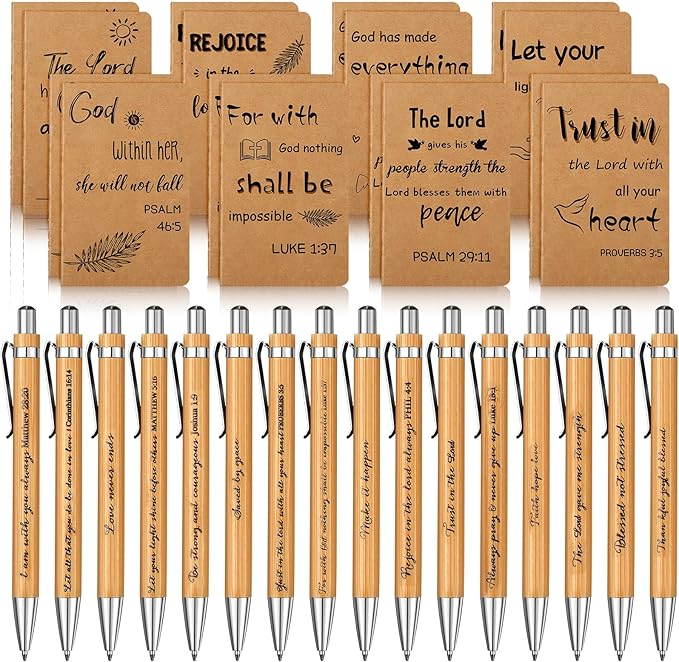 The Lord
REJOICE
in the
God has made
everything
Let your
God
within her,
she will not fall
PSALM
46:5
For with
God nothing
shall be
impossible
LUKE 1:37
The Lord
gives his
people strength the
Lord blesses them with
peace
PSALM 29:11
Trust in
the Lord with
all your
heart
PROVERBS 3:5
I am with you always Matthew 28:20
Let all that you do be done in love 1 Corinthians 16:14
Love never ends
Let your light shine before others MATTHEW 5:16
Be strong and courageous Joshua 1:9
Saved by grace
Trust in the lord with all your heart PROVERBS 3:5
For with God nothing shall be impossible Luke 1:37
Make it happen
Rejoice in the lord always PHIL 4:4
Trust in the Lord
Always pray & never give up Luke 18:1
Faith hope love
The Lord gave me strength
Blessed not stressed
Than kful joyful blessed